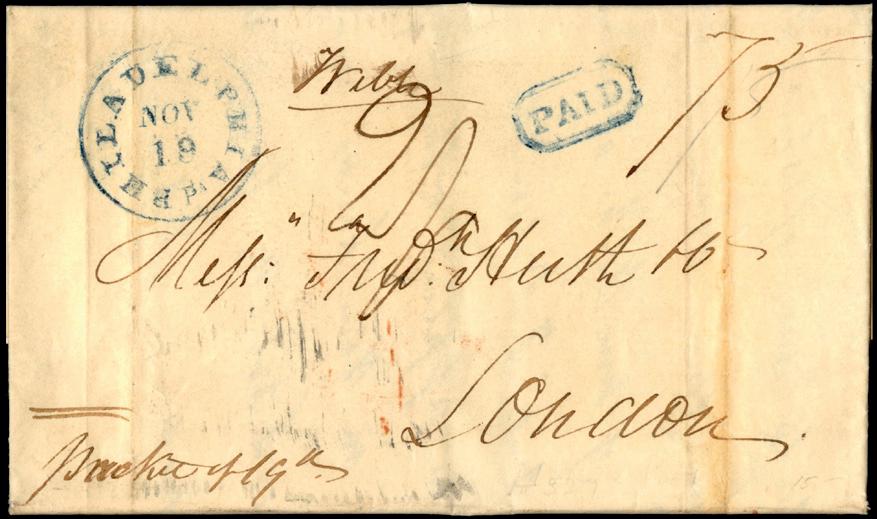 PHILADELPHIA Pa
NOV
19
Webb
PAID
75
2/
Mess.rs Fred.k Huth & Co
London
packet of 19th